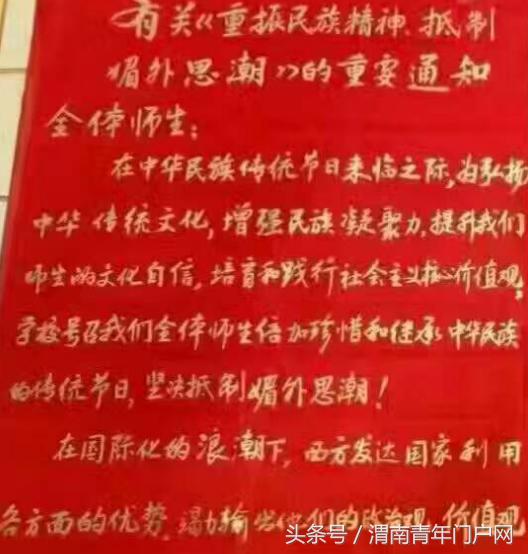 有关《重振民族精神、抵制
媚外思潮》的重要通知
全体师生：
在中华民族传统节日来临之际，为弘扬
中华传统文化，增强民族凝聚力，提升我们
师生的文化自信，培育和践行社会主义核心价值观，
学校号召我们全体师生倍加珍惜和继承中华民族
的传统节日，坚决抵制媚外思潮！
在国际化的浪潮下，西方发达国家利用
各方面的优势，竭力输出他们的政治观，价值观
头条号/渭南青年门户网